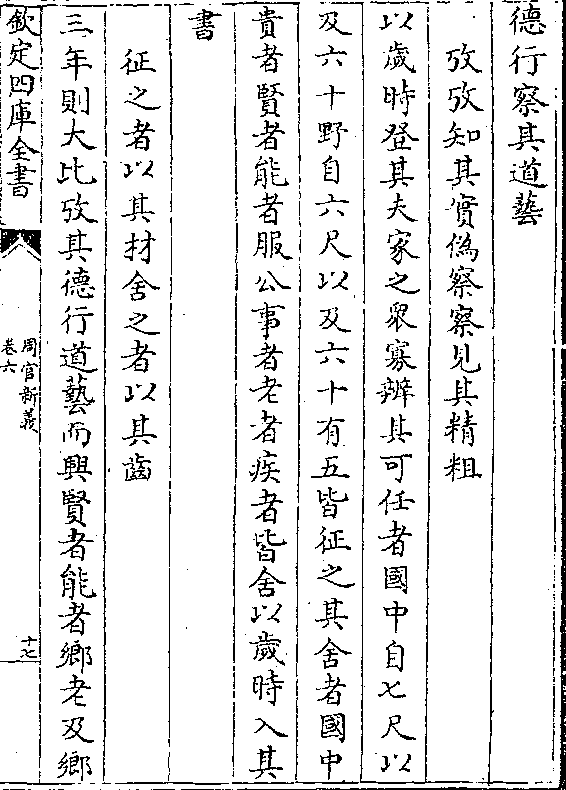 德行察其道藝
攷攷知其實偽察察見其精粗
以歲時登其夫家之眾寡辨其可任者國中自七尺以
及六十野自六尺以及六十有五皆征之其舍者國中
貴者賢者能者服公事者老者疾者皆舍以歲時入其
書
征之者以其材舍之者以其齒
三年則大比攷其德行道藝而興賢者能者鄉老及鄉
欽定四庫全書
周官新義
卷六
十七